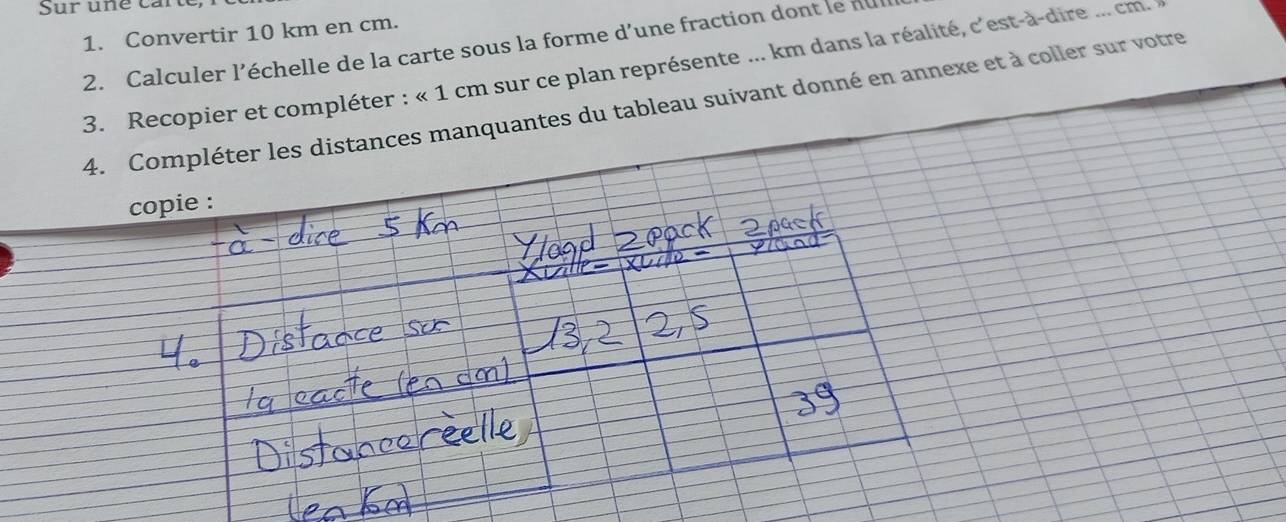 Sur une carte,
1. Convertir 10 km en cm.
2. Calculer l'échelle de la carte sous la forme d'une fraction dont le
3. Recopier et compléter : « 1 cm sur ce plan représente ... km dans la réalité, c'est-à-dire ... cm. »
4. Compléter les distances manquantes du tableau suivant donné en annexe et à coller sur votre
copie :
-à-dire 5 Km
Yland 2pack 2pack
Xville= Xville= Yland=
4. Distance sur 13,2 2,5
la carte (en cm)
Distance réelle 39
(en Km)